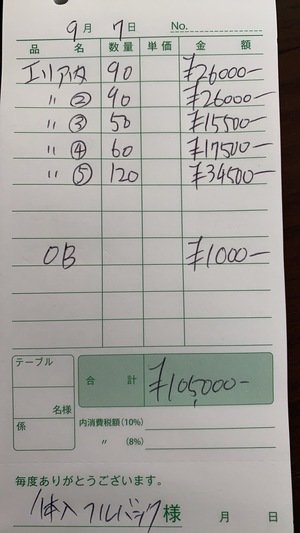 9月 7日 No.
品名 数量 単価 金額
エリア 90 ¥26000-
〃 ② 90 ¥26000-
〃 ③ 50 ¥15500-
〃 ④ 60 ¥17500-
〃 ⑤ 120 ¥34500-
OB ¥1000-
テーブル
名様
係
合計 ¥105,000-
内消費税額(10%)
〃 (8%)
毎度ありがとうございます。
体入フルバック様 月 日